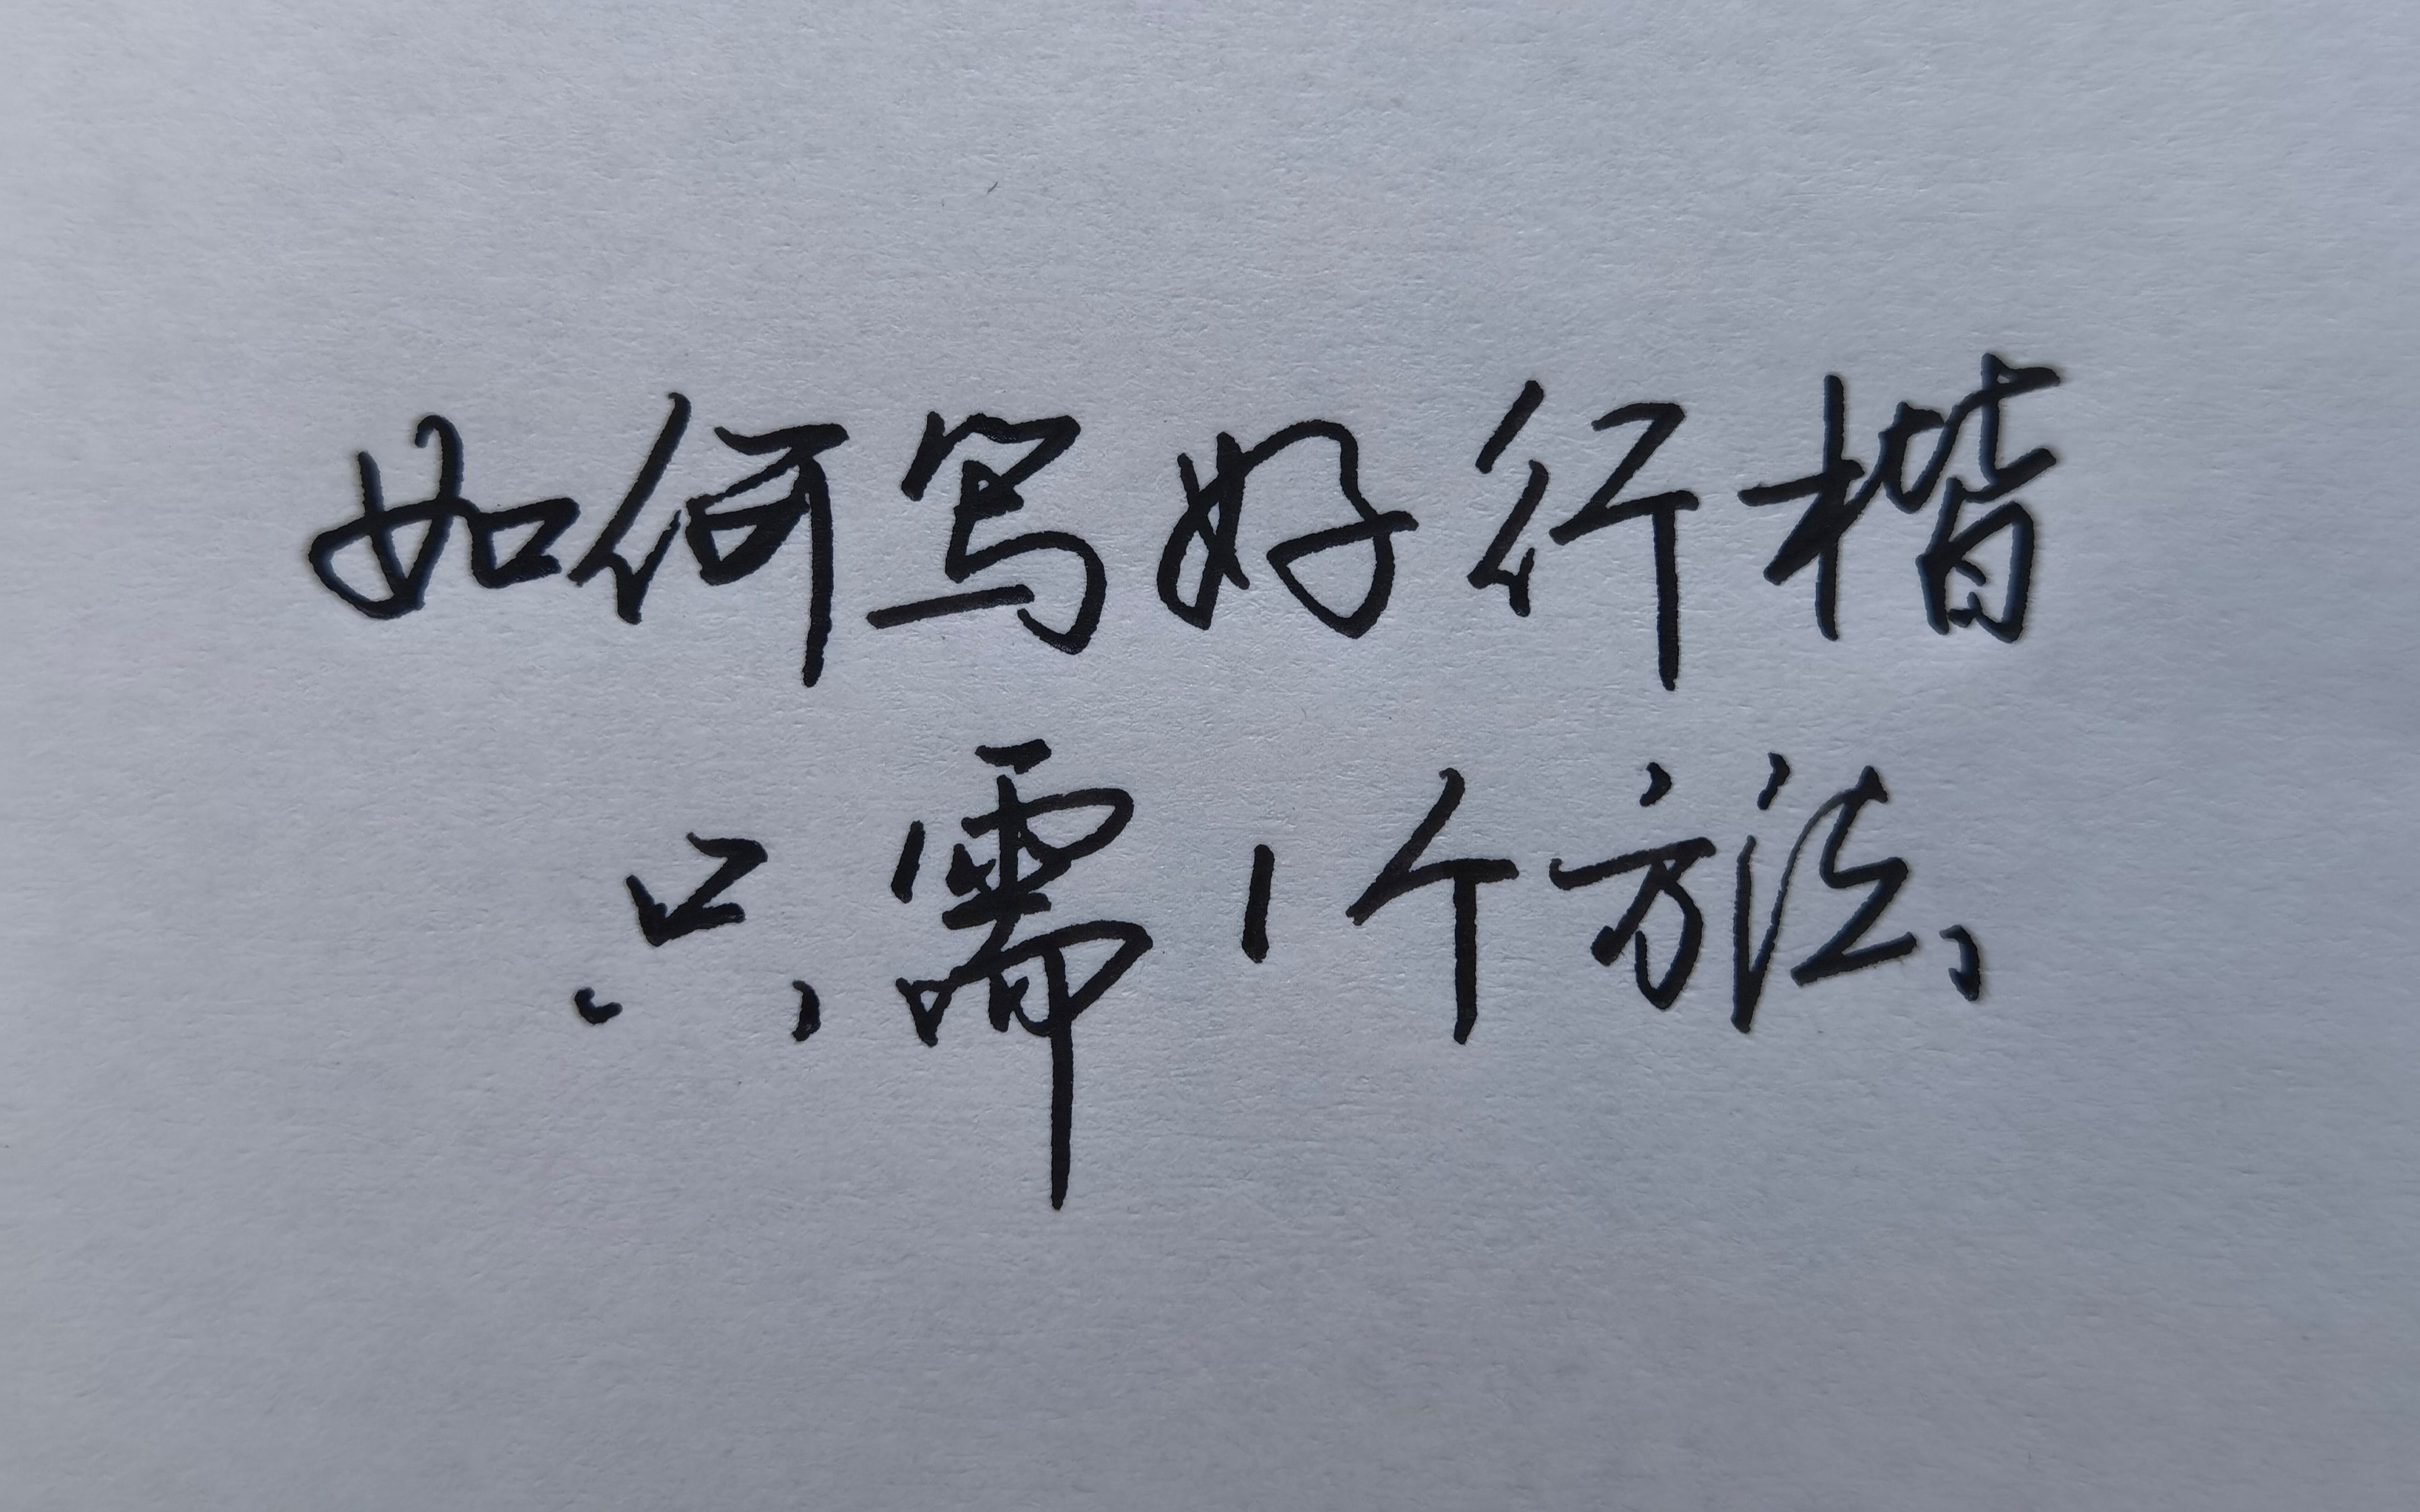 如何写好行楷
只需1个方法